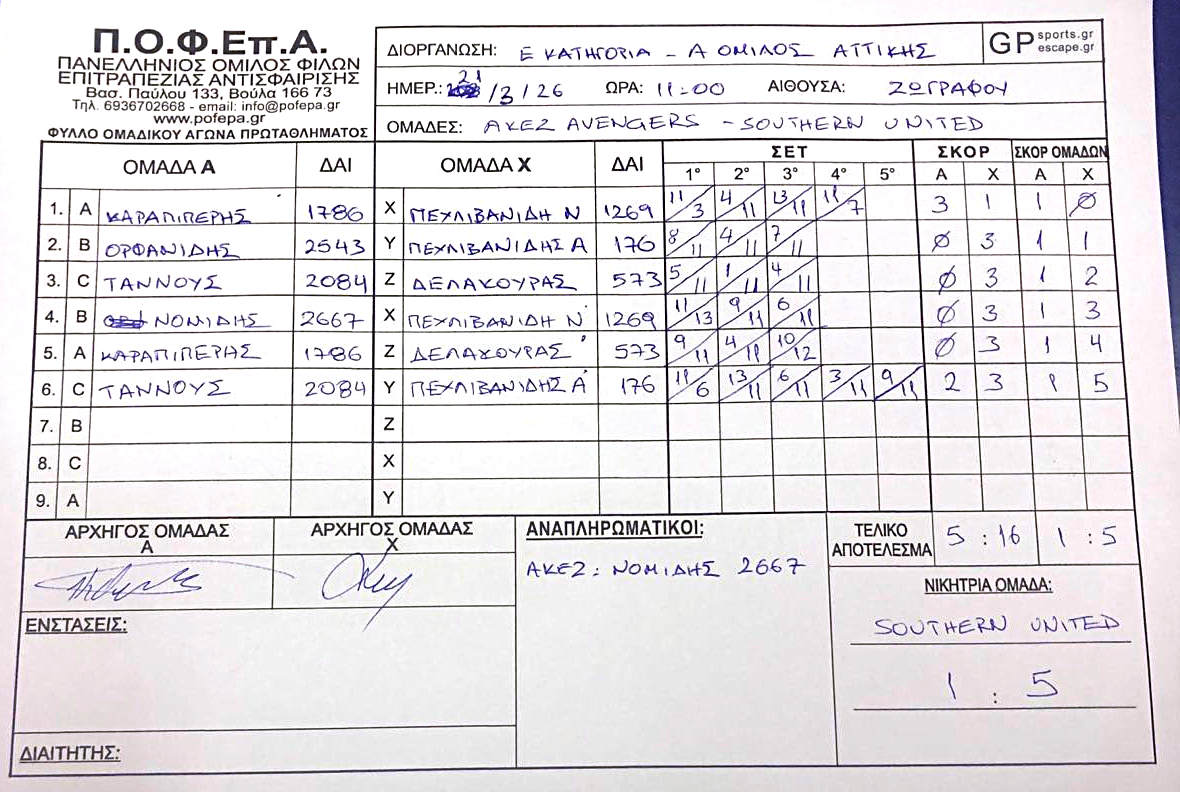 Π.Ο.Φ.Επ.Α.
ΠΑΝΕΛΛΗΝΙΟΣ ΟΜΙΛΟΣ ΦΙΛΩΝ
ΕΠΙΤΡΑΠΕΖΙΑΣ ΑΝΤΙΣΦΑΙΡΙΣΗΣ
Βασ. Παύλου 133, Βούλα 166 73
Τηλ. 6936702668 - email: info@pofepa.gr
www.pofepa.gr
ΦΥΛΛΟ ΟΜΑΔΙΚΟΥ ΑΓΩΝΑ ΠΡΩΤΑΘΛΗΜΑΤΟΣ
ΔΙΟΡΓΑΝΩΣΗ: Ε ΚΑΤΗΓΟΡΙΑ - Α ΟΜΙΛΟΣ ΑΤΤΙΚΗΣ
GP sports.gr
escape.gr
ΗΜΕΡ.: 21/3/26 ΩΡΑ: 11:00 ΑΙΘΟΥΣΑ: ΖΩΓΡΑΦΟΥ
ΟΜΑΔΕΣ: ΑΚΕΖ AVENGERS - SOUTHERN UNITED
ΟΜΑΔΑ Α ΔΑΙ ΟΜΑΔΑ Χ ΔΑΙ ΣΕΤ ΣΚΟΡ ΣΚΟΡ ΟΜΑΔΩΝ
1° 2° 3° 4° 5° Α Χ Α Χ
1. A ΚΑΡΑΠΙΠΕΡΗΣ 1786 X ΠΕΧΛΙΒΑΝΙΔΗ Ν 1269 11/3 4/11 13/11 11/7 3 1 1 Ø
2. B ΟΡΦΑΝΙΔΗΣ 2543 Y ΠΕΧΛΙΒΑΝΙΔΗΣ Α 176 8/11 4/11 7/11 Ø 3 1 1
3. C ΤΑΝΝΟΥΣ 2084 Z ΔΕΛΑΚΟΥΡΑΣ 573 5/11 1/11 4/11 Ø 3 1 2
4. B ΝΟΜΙΔΗΣ 2667 X ΠΕΧΛΙΒΑΝΙΔΗ Ν 1269 11/13 9/11 6/11 Ø 3 1 3
5. A ΚΑΡΑΠΙΠΕΡΗΣ 1786 Z ΔΕΛΑΚΟΥΡΑΣ 573 9/11 4/11 10/12 Ø 3 1 4
6. C ΤΑΝΝΟΥΣ 2084 Y ΠΕΧΛΙΒΑΝΙΔΗΣ Α 176 11/6 13/11 6/11 3/11 9/11 2 3 1 5
7. B Z
8. C X
9. A Y
ΑΡΧΗΓΟΣ ΟΜΑΔΑΣ Α
ΑΡΧΗΓΟΣ ΟΜΑΔΑΣ Χ
ΑΝΑΠΛΗΡΩΜΑΤΙΚΟΙ:
ΑΚΕΖ: ΝΟΜΙΔΗΣ 2667
ΤΕΛΙΚΟ ΑΠΟΤΕΛΕΣΜΑ 5 : 16 1 : 5
ΝΙΚΗΤΡΙΑ ΟΜΑΔΑ:
SOUTHERN UNITED
1 : 5
ΕΝΣΤΑΣΕΙΣ:
ΔΙΑΙΤΗΤΗΣ: